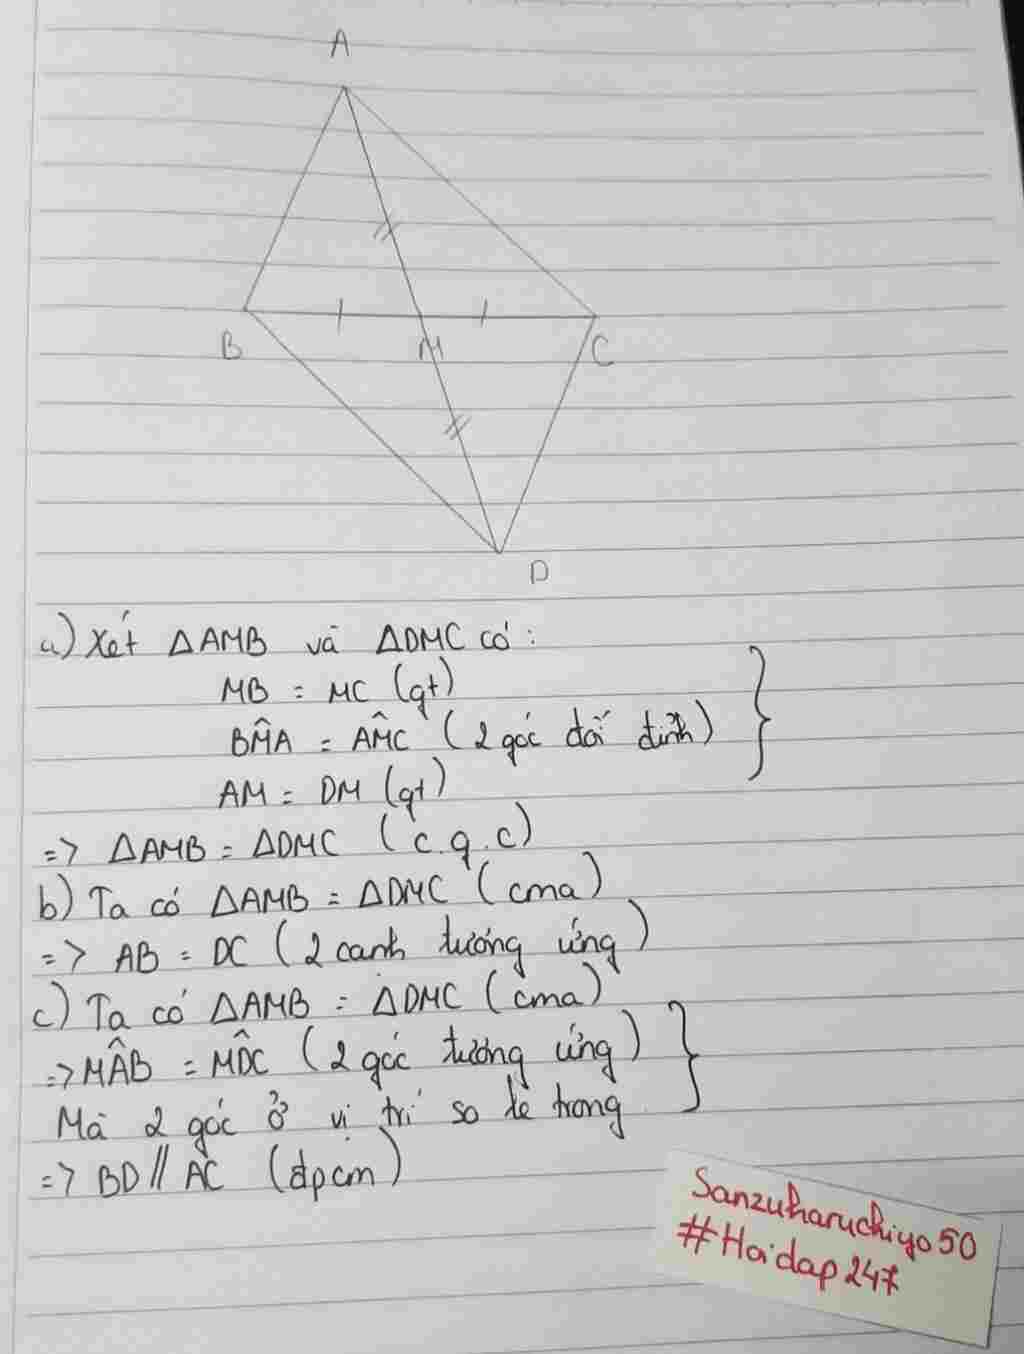 A
B
M
C
D
a) Xét ΔAMB và ΔDMC có:
MB = MC (gt)
BM̂A = AM̂C (2 góc đối đỉnh)
AM = DM (gt)
=> ΔAMB = ΔDMC (c.g.c)
b) Ta có ΔAMB = ΔDMC (cma)
=> AB = DC (2 cạnh tương ứng)
c) Ta có ΔAMB = ΔDMC (cma)
=> MÂB = MD̂C (2 góc tương ứng)
Mà 2 góc ở vị trí so le trong
=> BD // AC (đpcm)
Sanzuharuchiyo50
#Hoidap247